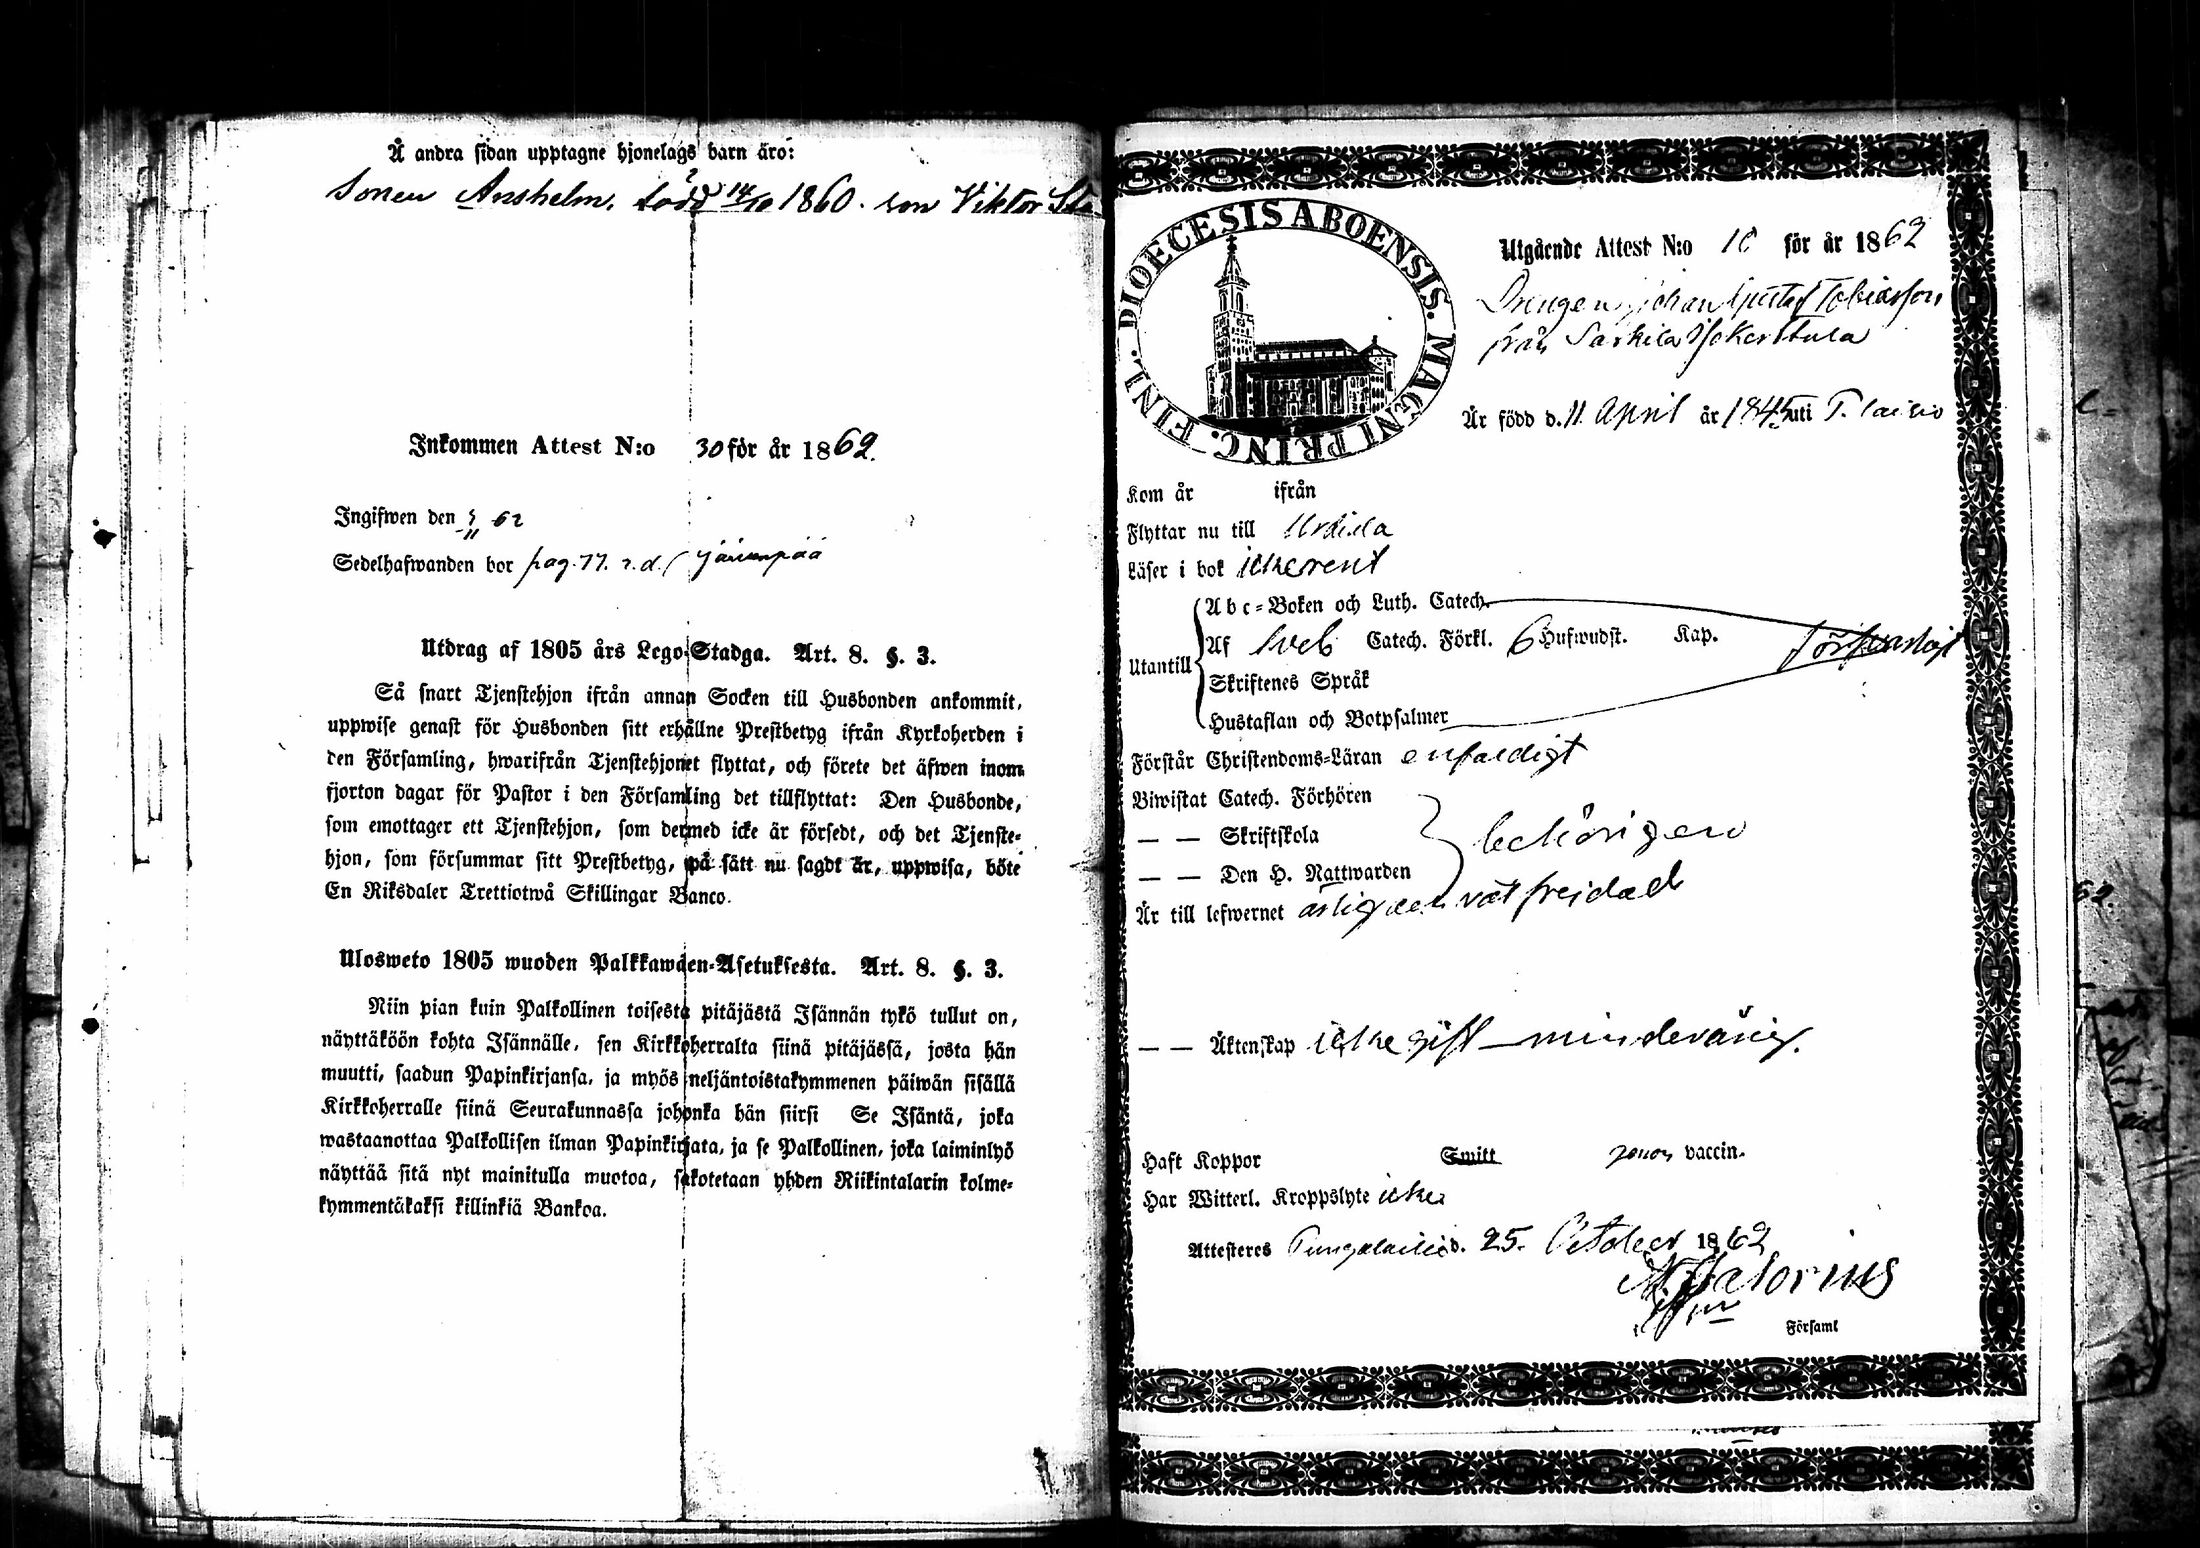 Å andra sidan upptagne hjonelags barn äro:
Sonen Anshelm. född 14/10 1860. son Viktor
Inkommen Attest N:o 30 för år 1862.
Ingifwen den 5/11 62
Sedelhafwanden bor pag. 77. r. d. Järvenpää
Utdrag af 1805 års Lego-Stadga. Art. 8. §. 3.
Så snart Tjenstehjon ifrån annan Socken till Husbonden ankommit,
uppwise genast för Husbonden sitt erhållne Prestbetyg ifrån Kyrkoherden i
den Församling, hwarifrån Tjenstehjonet flyttat, och förete det äfwen inom
fjorton dagar för Pastor i den Församling det tillflyttat: Den Husbonde,
som emottager ett Tjenstehjon, som dermed icke är försedt, och det Tjenste-
hjon, som försummar sitt Prestbetyg, på sätt nu sagdt är, uppwisa, böte
En Riksdaler Trettiotwå Skillingar Banco.
Ulosweto 1805 wuoden Palkkawäen-Asetuksesta. Art. 8. §. 3.
Niin pian kuin Palkollinen toisesta pitäjästä Isännän tykö tullut on,
näyttäköön kohta Isännälle, sen Kirkkoherralta siinä pitäjässä, josta hän
muutti, saadun Papinkirjansa, ja myös neljäntoistakymmenen päiwän sisällä
Kirkkoherralle siinä Seurakunnassa johonka hän siirsi Se Isäntä, joka
wastaanottaa Palkollisen ilman Papinkirjata, ja se Palkollinen, joka laiminlyö
näyttää sitä nyt mainitulla muotoa, sakotetaan yhden Riikintalarin kolme-
kymmentäkaksi killinkiä Bankoa.
DIOECESIS ABOENSIS. MAGNI PRINC. FINL.
Utgående Attest N:o 10 för år 1862
Drengen Johan Gustaf Tobiasson
från Särkilä
Är född d. 11 April år 1845 uti P. laitio
Kom år ifrån
Flyttar nu till Urdiala
Läser i bok icke rent
Utantill
Abc-Boken och Luth. Catech.
Af Sveb Catech. Förkl. 6 Hufwudst. Kap.
försvarligt
Skriftenes Språk
Hustaflan och Botpsalmer
Förstår Christendoms-Läran enfaldigt
Biwistat Catech. Förhören
— — Skriftskola behörigen
— — Den H. Nattwarden
Är till lefwernet ärlig och väl frejdad
— — Äktenskap icke gift — minderårig.
Haft Koppor Smitt genom vaccin.
Har Witterl. Kroppslyte icke
Attesteres Pungalaitio d. 25. October 1862
Församl